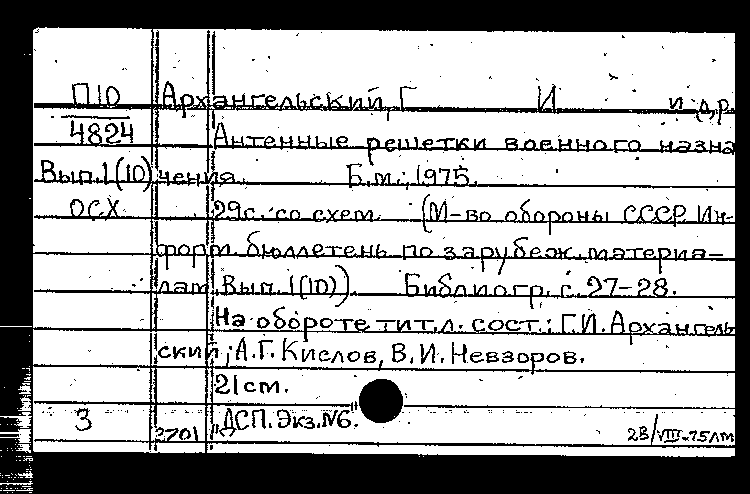 П10 Архангельский, Г И и др.
4824 Антенные решетки военного назна
Вып.1(10) чения. Б.м., 1975.
ОСХ 29с. со схем. (М-во обороны СССР. Ин-
форм. бюллетень по зарубеж. материа-
лам. Вып. 1(10)). Библиогр. с. 27-28.
На обороте тит.л. сост.: Г.И. Архангель
ский, А.Г. Кислов, В.И. Невзоров.
21см.
3 2701 "ДСП. Экз. №6." 28/VIII-75лт